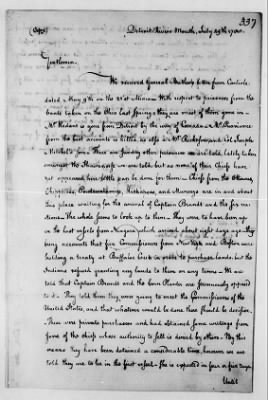 337
(Copy) Detroit River Mouth, July 19th 1788.
Gentlemen,
We received General Butler's letter from Carlisle
dated May 9th on the 21st. With respect to prisoners from the
boats taken on the Ohio last Spring; they are most of them gone in
Mr. is gone from Detroit by the way of Canada. Mr.
from the last accounts is killed, as also is Mr. and Joseph
son. There are sundry other prisoners
amongst the we are told but as none of their Chiefs have
yet appeared here little can be done for them. Chiefs from the Ottawas
Chippewas, and are in and about
this place waiting for the arrival of Captain Brandt and the
tions. The whole seem to look up to them. They were to have been up
in the last vessels from Niagara which arrived about eight days ago. They
bring accounts that five Commissioners from New York and Boston are
holding a treaty at Buffaloe Creek in order to purchase lands but the
Indians refused granting any lands to them on any terms. We are
told that Captain Brandt and the Corn Planter are strenuously opposed
to it. They told them they were going to meet the Commissioners of the
United States, and that whatever would be done there should be decisive.
These were private purchasers and had obtained some writings from
some of the chiefs whose authority to sell is denied by others. By this
means they have been detained a considerable time, however we are
told they are to be in the first vessel. She is expected in four or five days
Until